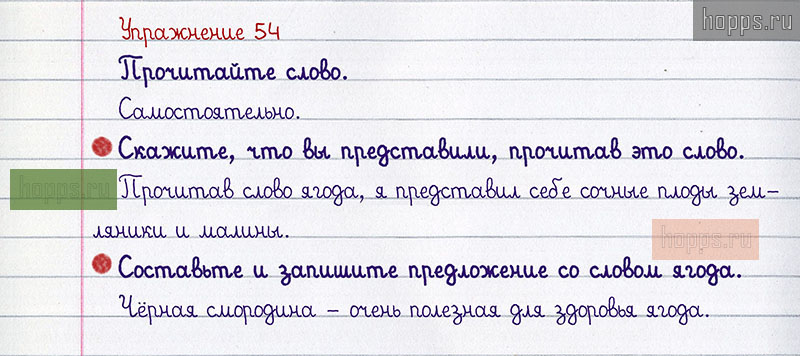 hopps.ru
Упражнение 54
Прочитайте слово.
Самостоятельно.
Скажите, что вы представили, прочитав это слово.
hopps.ru
Прочитав слово ягода, я представил себе сочные плоды зем–
ляники и малины.
hopps.ru
Составьте и запишите предложение со словом ягода.
Чёрная смородина – очень полезная для здоровья ягода.